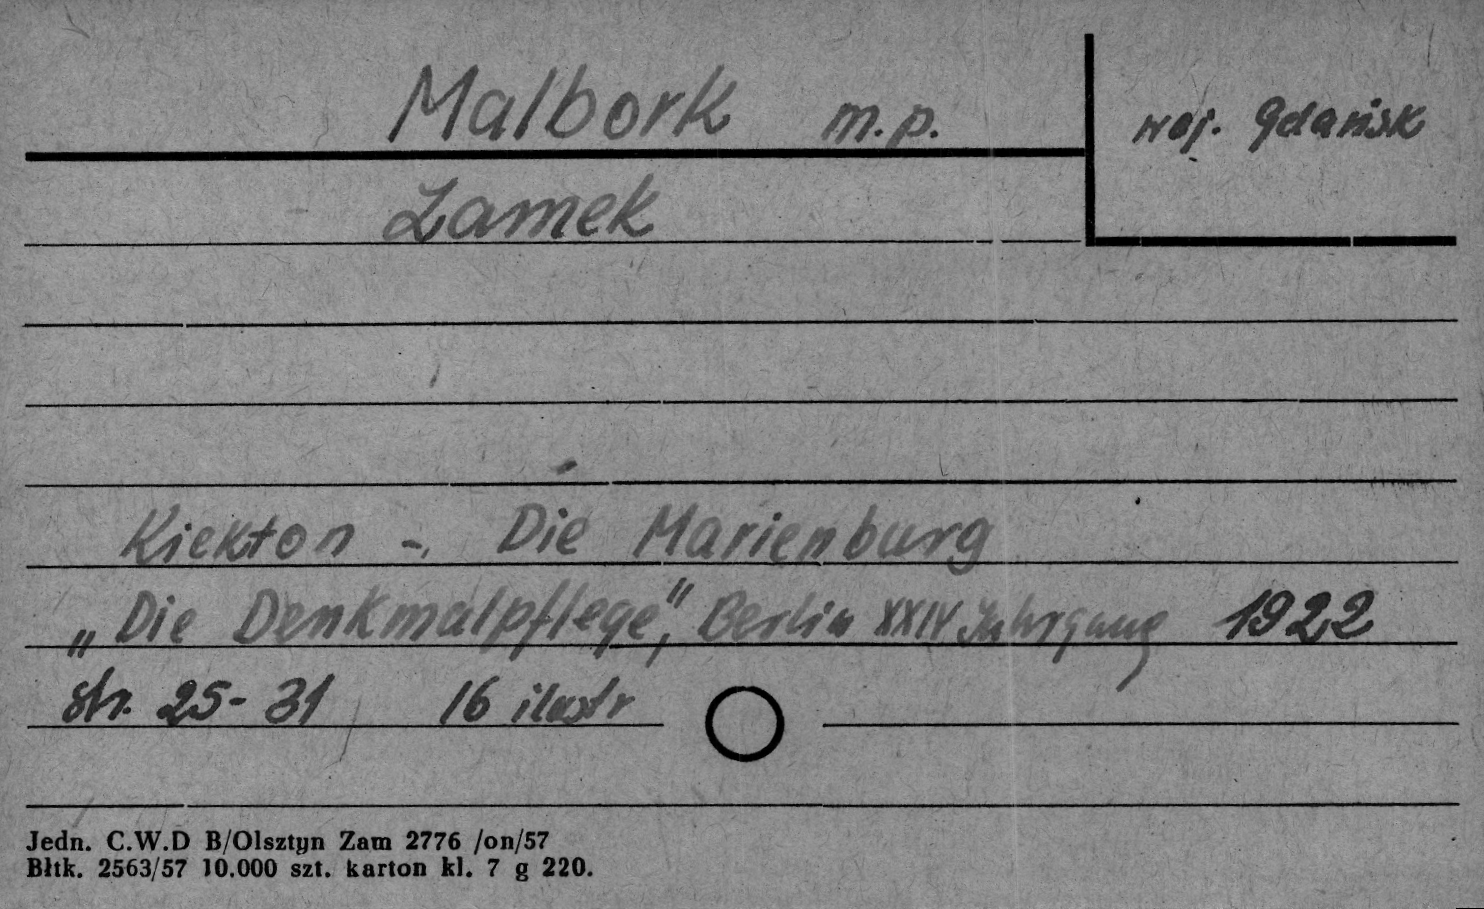 Malbork m.p.
woj. Gdańsk
Zamek
Kiekton - Die Marienburg
„Die Denkmalpflege”, Berlin XXIV Jahrgang 1922
str. 25-31 16 ilustr
Jedn. C.W.D B/Olsztyn Zam 2776 /on/57
Błtk. 2563/57 10.000 szt. karton kl. 7 g 220.